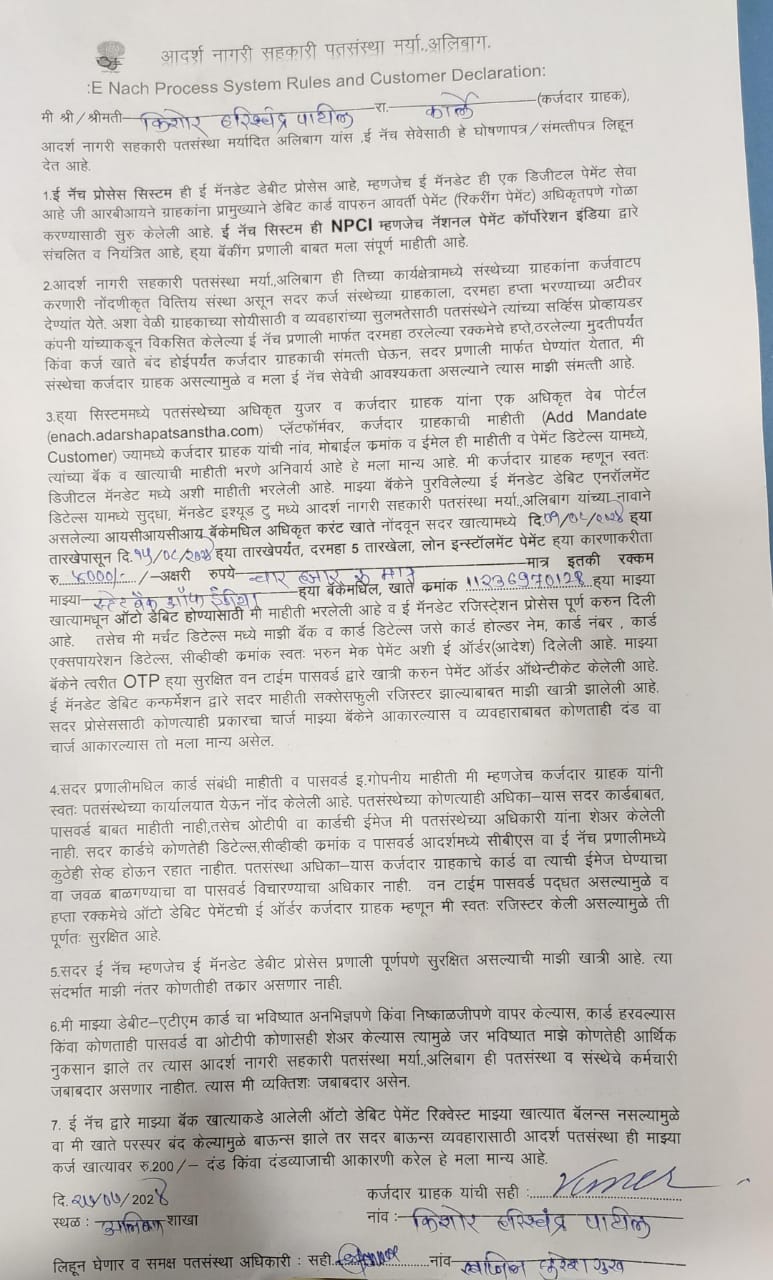 आदर्श नागरी सहकारी पतसंस्था मर्या.,अलिबाग.
:E Nach Process System Rules and Customer Declaration:
मी श्री/श्रीमती किशोर हरिश्चंद्र पाटील रा. कार्ले (कर्जदार ग्राहक),
आदर्श नागरी सहकारी पतसंस्था मर्यादित अलिबाग यांस ,ई नॅच सेवेसाठी हे घोषणापत्र/संमत्तीपत्र लिहून
देत आहे.
1.ई नॅच प्रोसेस सिस्टिम ही ई मॅनडेट डेबीट प्रोसेस आहे, म्हणजेच ई मॅनडेट ही एक डिजीटल पेमेंट सेवा
आहे जी आरबीआयने ग्राहकांना प्रामुख्याने डेबिट कार्ड वापरुन आवर्ती पेमेंट (रिकरींग पेमेंट) अधिकृतपणे गोळा
करण्यासाठी सुरु केलेली आहे. ई नॅच सिस्टिम ही NPCI म्हणजेच नॅशनल पेमेंट कॉर्पोरेशन इंडिया द्वारे
संचलित व नियंत्रित आहे, ह्या बॅकींग प्रणाली बाबत मला संपूर्ण माहीती आहे.
2.आदर्श नागरी सहकारी पतसंस्था मर्या.,अलिबाग ही तिच्या कार्यक्षेत्रामध्ये संस्थेच्या ग्राहकांना कर्जवाटप
करणारी नोंदणीकृत वित्तिय संस्था असून सदर कर्ज संस्थेच्या ग्राहकाला, दरमहा हप्ता भरण्याच्या अटीवर
देण्यांत येते. अशा वेळी ग्राहकाच्या सोयीसाठी व व्यवहारांच्या सुलभतेसाठी पतसंस्थेने त्यांच्या सर्व्हिस प्रोव्हायडर
कंपनी यांच्याकडून विकसित केलेल्या ई नॅच प्रणाली मार्फत दरमहा ठरलेल्या रक्कमेचे हप्ते,ठरलेल्या मुदतीपर्यंत
किंवा कर्ज खाते बंद होईपर्यंत कर्जदार ग्राहकाची संमत्ती घेऊन, सदर प्रणाली मार्फत घेण्यांत येतात, मी
संस्थेचा कर्जदार ग्राहक असल्यामुळे व मला ई नॅच सेवेची आवश्यकता असल्याने त्यास माझी संमत्ती आहे.
3.ह्या सिस्टिममध्ये पतसंस्थेच्या अधिकृत युजर व कर्जदार ग्राहक यांना एक अधिकृत वेब पोर्टल
(enach.adarshapatsanstha.com) प्लॅटफॉर्मवर, कर्जदार ग्राहकाची माहीती (Add Mandate
Customer) ज्यामध्ये कर्जदार ग्राहक यांची नांव, मोबाईल क्रमांक व ईमेल ही माहीती व पेमेंट डिटेल्स यामध्ये,
त्यांच्या बॅंक व खात्याची माहीती भरणे अनिवार्य आहे हे मला मान्य आहे. मी कर्जदार ग्राहक म्हणून स्वतः
डिजीटल मॅनडेट मध्ये अशी माहीती भरलेली आहे. माझ्या बॅकेने पुरविलेल्या ई मॅनडेट डेबिट एनरॉलमेंट
डिटेल्स यामध्ये सुद्धा, मॅनडेट इश्यूड टु मध्ये आदर्श नागरी सहकारी पतसंस्था मर्या.,अलिबाग यांच्या नावाने
असलेल्या आयसीआयसीआय बॅंकेमधिल अधिकृत करंट खाते नोंदवून सदर खात्यामध्ये दि. ह्या
तारखेपासून दि. ह्या तारखेपर्यंत, दरमहा 5 तारखेला, लोन इन्स्टॉलमेंट पेमेंट ह्या कारणाकरीता
रु ४०००/- /-अक्षरी रुपये चार हजार रु मात्र मात्र इतकी रक्कम
माझ्या स्टेट बँक ऑफ इंडिया ह्या बॅकेमधिल, खाते क्रमांक 11236970128 ह्या माझ्या
खात्यामधून ऑटो डेबिट होण्यासाठी मी माहीती भरलेली आहे व ई मॅनडेट रजिस्ट्रेशन प्रोसेस पूर्ण करुन दिली
आहे. तसेच मी मर्चंट डिटेल्स मध्ये माझी बॅक व कार्ड डिटेल्स जसे कार्ड होल्डर नेम, कार्ड नंबर , कार्ड
एक्सपायरेशन डिटेल्स, सीव्हीव्ही क्रमांक स्वतः भरुन मेक पेमेंट अशी ई ऑर्डर(आदेश) दिलेली आहे. माझ्या
बॅकेने त्वरीत OTP ह्या सुरक्षित वन टाईम पासवर्ड द्वारे खात्री करुन पेमेंट ऑर्डर ऑथेन्टीकेट केलेली आहे.
ई मॅनडेट डेबिट कन्फर्मेशन द्वारे सदर माहीती सक्सेसफुली रजिस्टर झाल्याबाबत माझी खात्री झालेली आहे.
सदर प्रोसेससाठी कोणत्याही प्रकारचा चार्ज माझ्या बॅकेने आकारल्यास व व्यवहाराबाबत कोणताही दंड वा
चार्ज आकारल्यास तो मला मान्य असेल.
4.सदर प्रणालीमधिल कार्ड संबंधी माहीती व पासवर्ड इ.गोपनीय माहीती मी म्हणजेच कर्जदार ग्राहक यांनी
स्वतः पतसंस्थेच्या कार्यालयात येऊन नोंद केलेली आहे. पतसंस्थेच्या कोणत्याही अधिका-यास सदर कार्डबाबत,
पासवर्ड बाबत माहीती नाही,तसेच ओटीपी वा कार्डची ईमेज मी पतसंस्थेच्या अधिकारी यांना शेअर केलेली
नाही. सदर कार्डचे कोणतेही डिटेल्स,सीव्हीव्ही क्रमांक व पासवर्ड आदर्शमध्ये सीबीएस वा ई नॅच प्रणालीमध्ये
कुठेही सेव्ह होऊन रहात नाहीत. पतसंस्था अधिका-यास कर्जदार ग्राहकाचे कार्ड वा त्याची ईमेज घेण्याचा
वा जवळ बाळगण्याचा वा पासवर्ड विचारण्याचा अधिकार नाही. वन टाईम पासवर्ड पद्धत असल्यामुळे व
हप्ता रक्कमेचे ऑटो डेबिट पेमेंटची ई ऑर्डर कर्जदार ग्राहक म्हणून मी स्वतः रजिस्टर केली असल्यामुळे ती
पूर्णतः सुरक्षित आहे.
5.सदर ई नॅच म्हणजेच ई मॅनडेट डेबीट प्रोसेस प्रणाली पूर्णपणे सुरक्षित असल्याची माझी खात्री आहे. त्या
संदर्भात माझी नंतर कोणतीही तक्रार असणार नाही.
6.मी माझ्या डेबीट-एटीएम कार्ड चा भविष्यात अनभिज्ञपणे किंवा निष्काळजीपणे वापर केल्यास, कार्ड हरवल्यास
किंवा कोणताही पासवर्ड वा ओटीपी कोणासही शेअर केल्यास त्यामुळे जर भविष्यात माझे कोणतेही आर्थिक
नुकसान झाले तर त्यास आदर्श नागरी सहकारी पतसंस्था मर्या.,अलिबाग ही पतसंस्था व संस्थेचे कर्मचारी
जबाबदार असणार नाहीत. त्यास मी व्यक्तिशः जबाबदार असेन.
7. ई नॅच द्वारे माझ्या बॅक खात्याकडे आलेली ऑटो डेबिट पेमेंट रिक्वेस्ट माझ्या खात्यात बॅलन्स नसल्यामुळे
वा मी खाते परस्पर बंद केल्यामुळे बाऊन्स झाले तर सदर बाऊन्स व्यवहारासाठी आदर्श पतसंस्था ही माझ्या
कर्ज खात्यावर रु.200/- दंड किंवा दंडव्याजाची आकारणी करेल हे मला मान्य आहे.
दि. /202 कर्जदार ग्राहक यांची सही :
स्थळ : अलिबाग शाखा नांव : किशोर हरिश्चंद्र पाटील
लिहून घेणार व समक्ष पतसंस्था अधिकारी : सही नांव